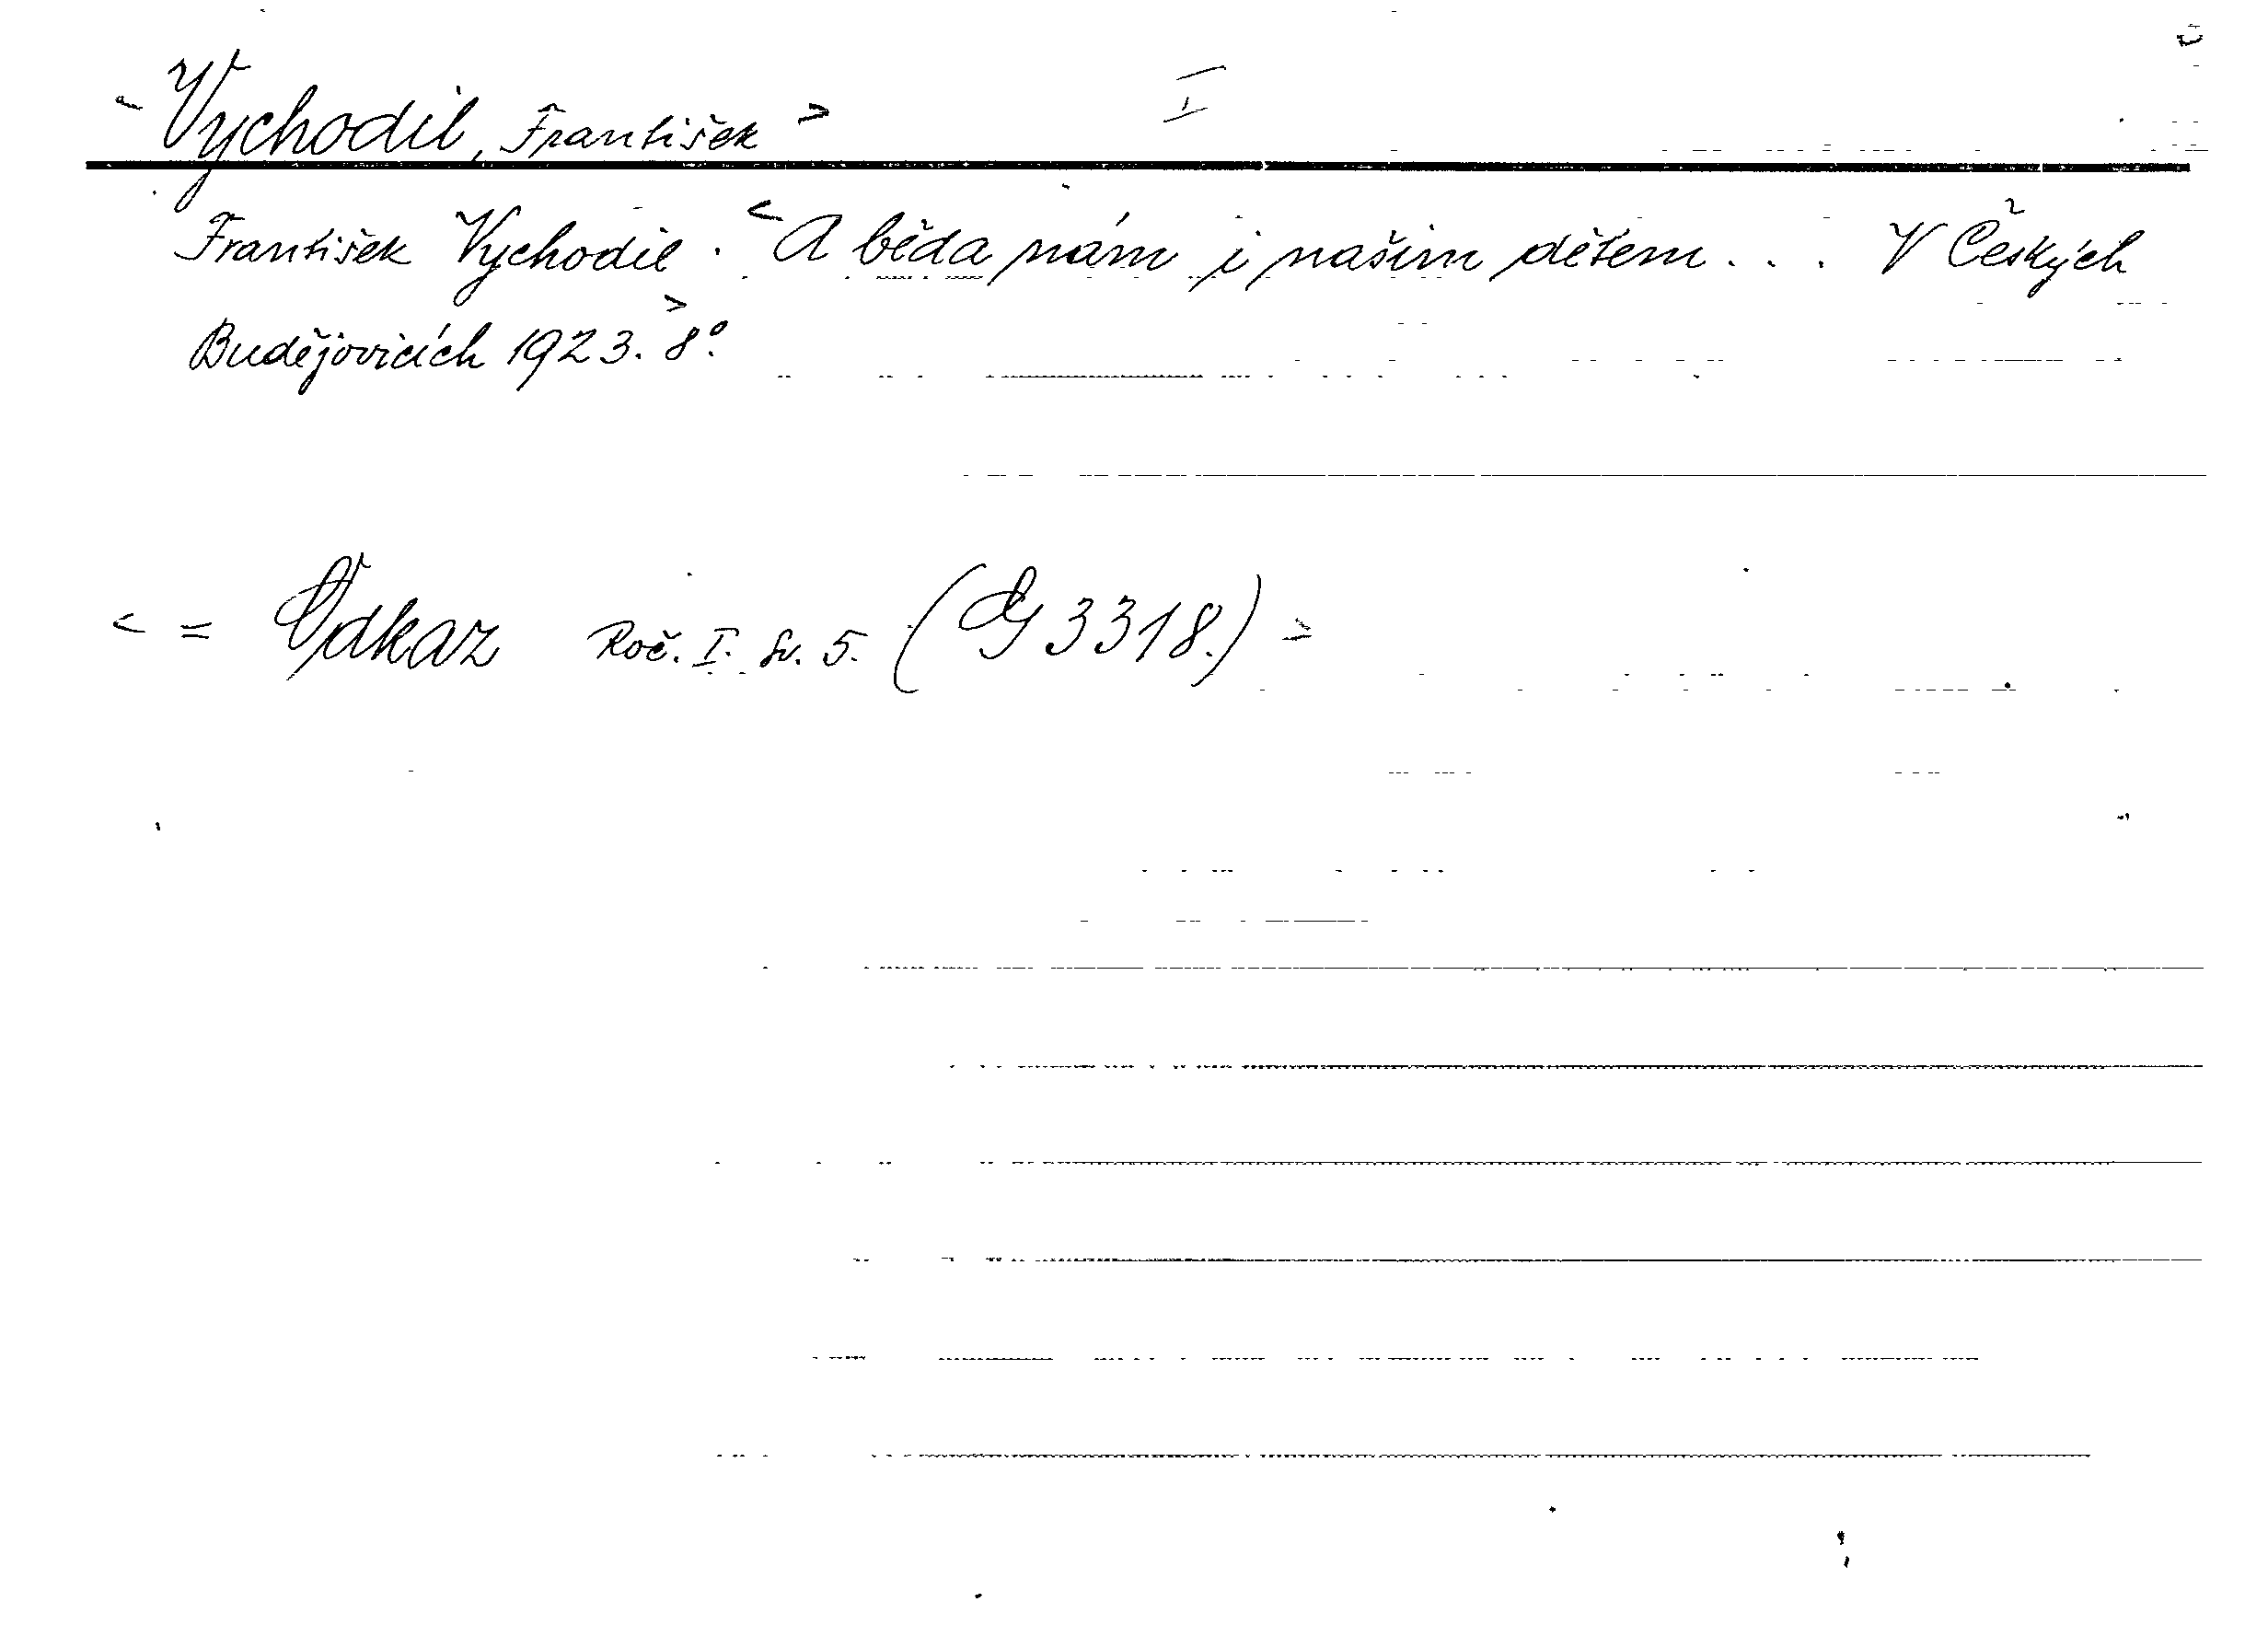 < Vychodil, František > I
František Vychodil. < A běda nám i našim dětem... V Českých
Budějovicích 1923. > 8°.
< = Odkaz Roč. I. sv. 5. (G 3318.) >